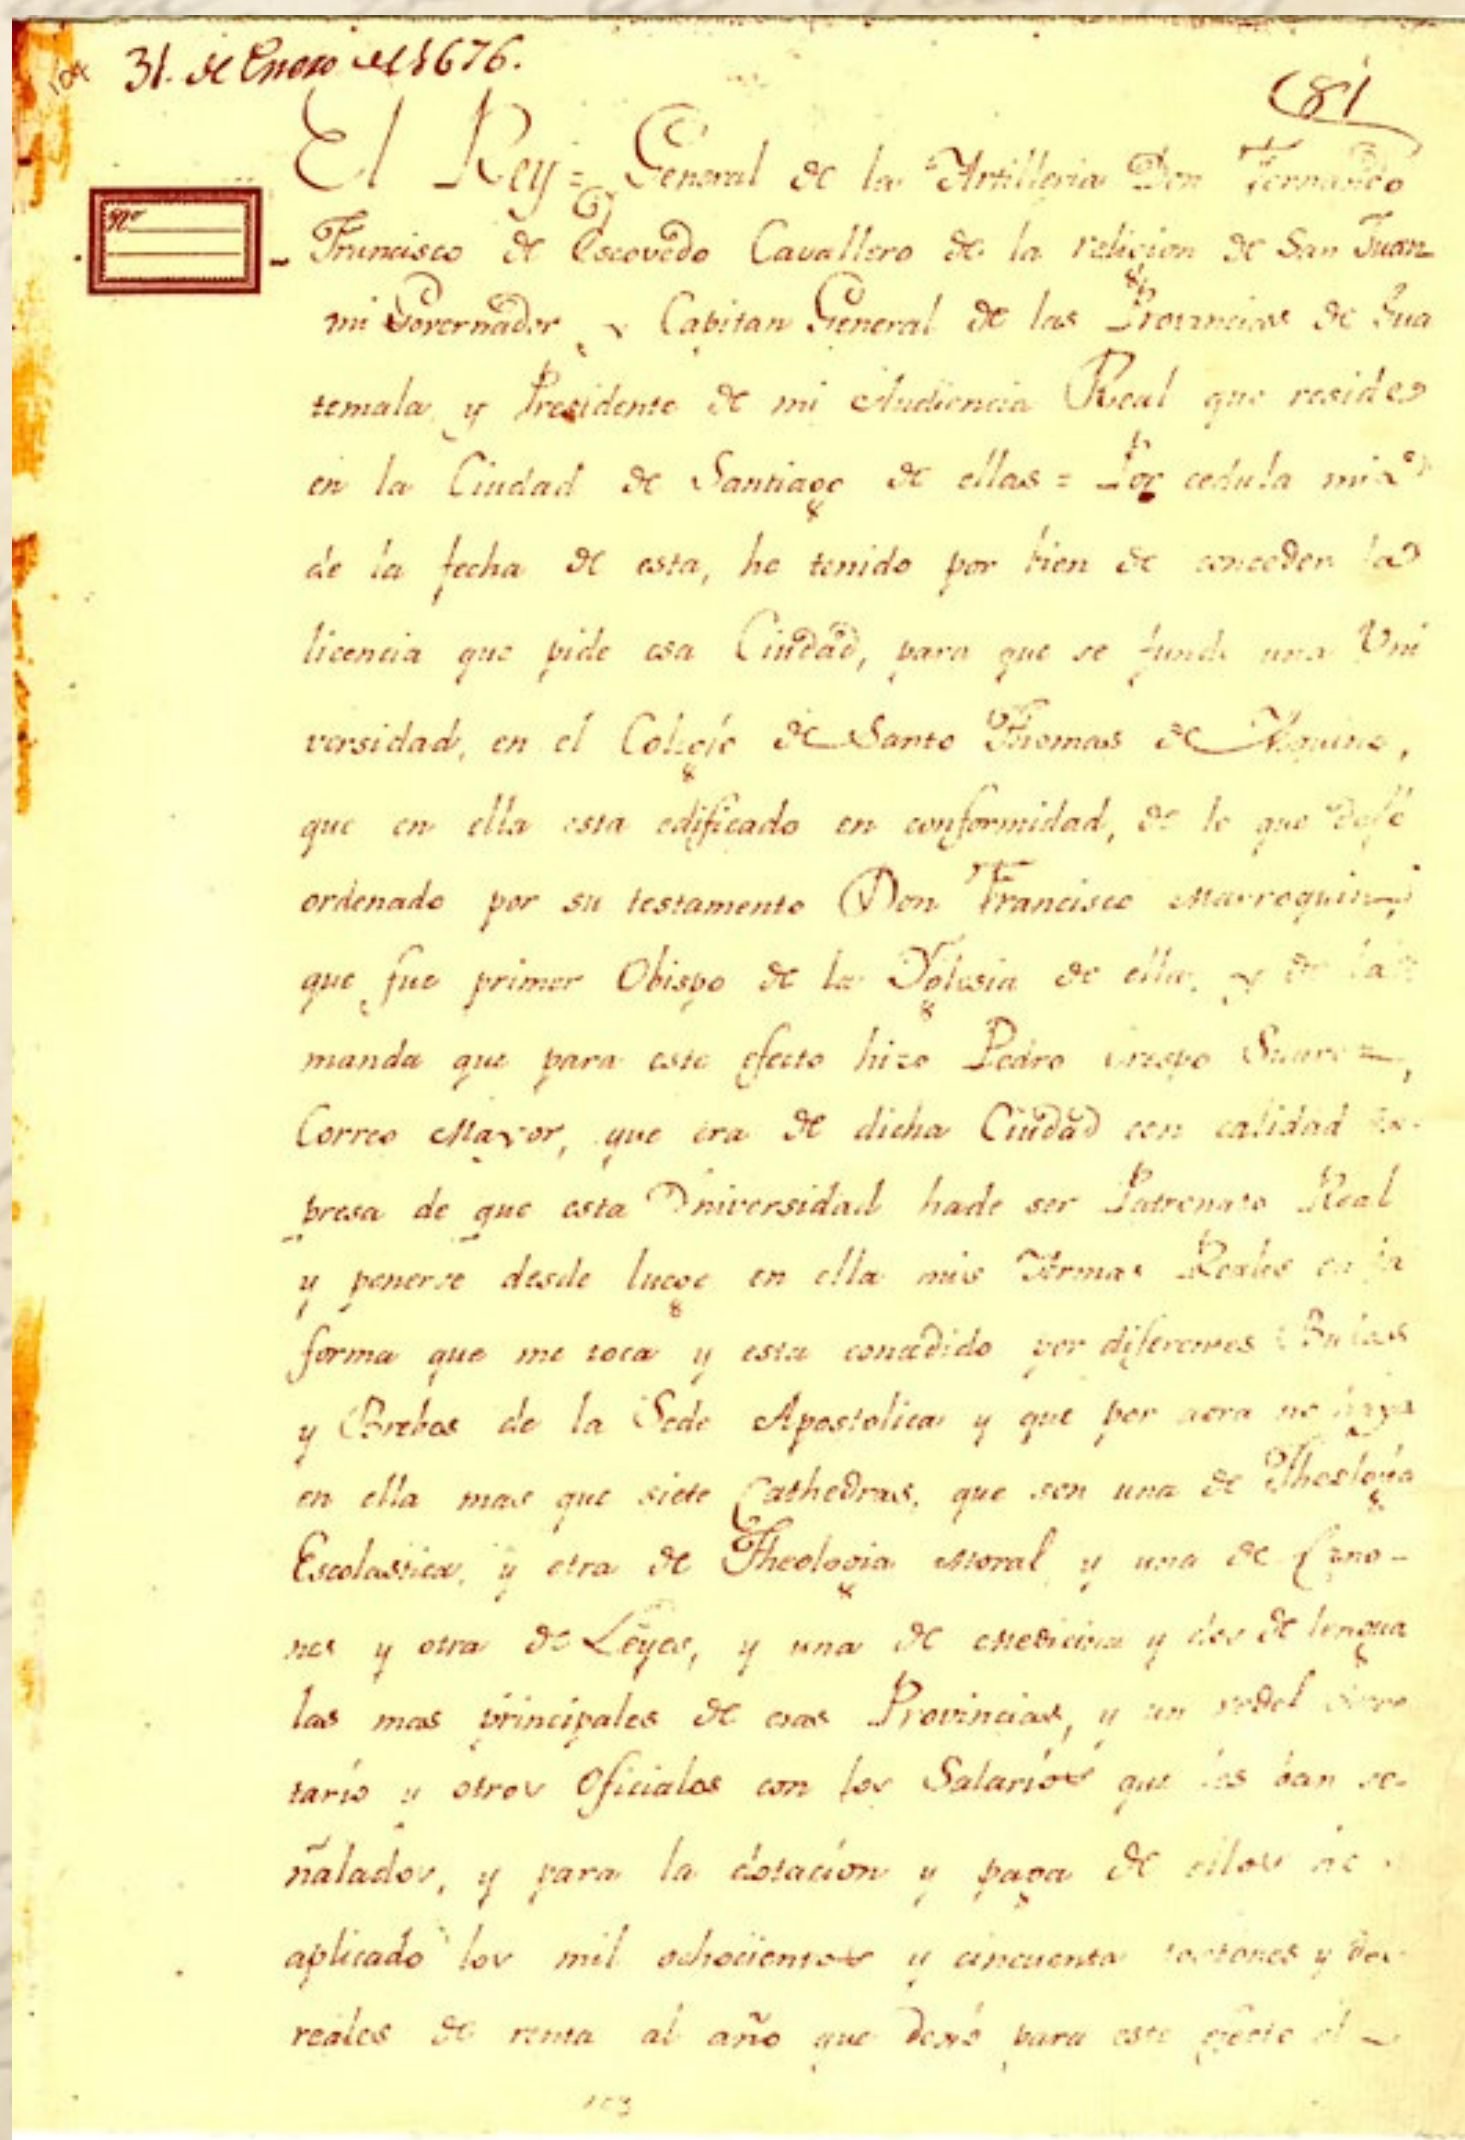 104
31. de Enero de 1676.
81
El Rey = General de la Artilleria Don Fernando
Nº
Francisco de Escovedo Cavallero de la relicion de San Juan
mi Governador, y Capitan General de las Provincias de Gua
temala, y Presidente de mi Audiencia Real que reside
en la Ciudad de Santiago de ellas = Por cedula mia
de la fecha de esta, he tenido por bien de conceder la
licencia que pide esa Ciudad, para que se funde una Vni
versidad, en el Colegio de Santo Thomas de Aquino,
que en ella esta edificado en conformidad, de lo que dejó
ordenado por su testamento Don Francisco Marroquin,
que fue primer Obispo de la Yglesia de ella, y de la
manda que para este efecto hizo Pedro Crespo Suarez,
Correo Mayor, que era de dicha Ciudad con calidad ex-
presa de que esta Vniversidad hade ser Patronato Real
y ponerse desde luego en ella mis Armas Reales en la
forma que me toca y esta concedido por diferentes Bulas
y Brebes de la Sede Apostolica y que por aora no haya
en ella mas que siete Cathedras, que son una de Theologia
Escolastica, y otra de Theologia Moral y una de Cano-
nes y otra de Leyes, y una de Medicina y dos de lengua
las mas principales de esas Provincias, y un vedel Secre
tario y otros Oficiales con los Salarios que les ban se-
ñalados, y para la dotacion y paga de ellos he
aplicado los mil ochocientos y cincuenta tostones y dos
reales de renta al año que dexó para este efecto el
103